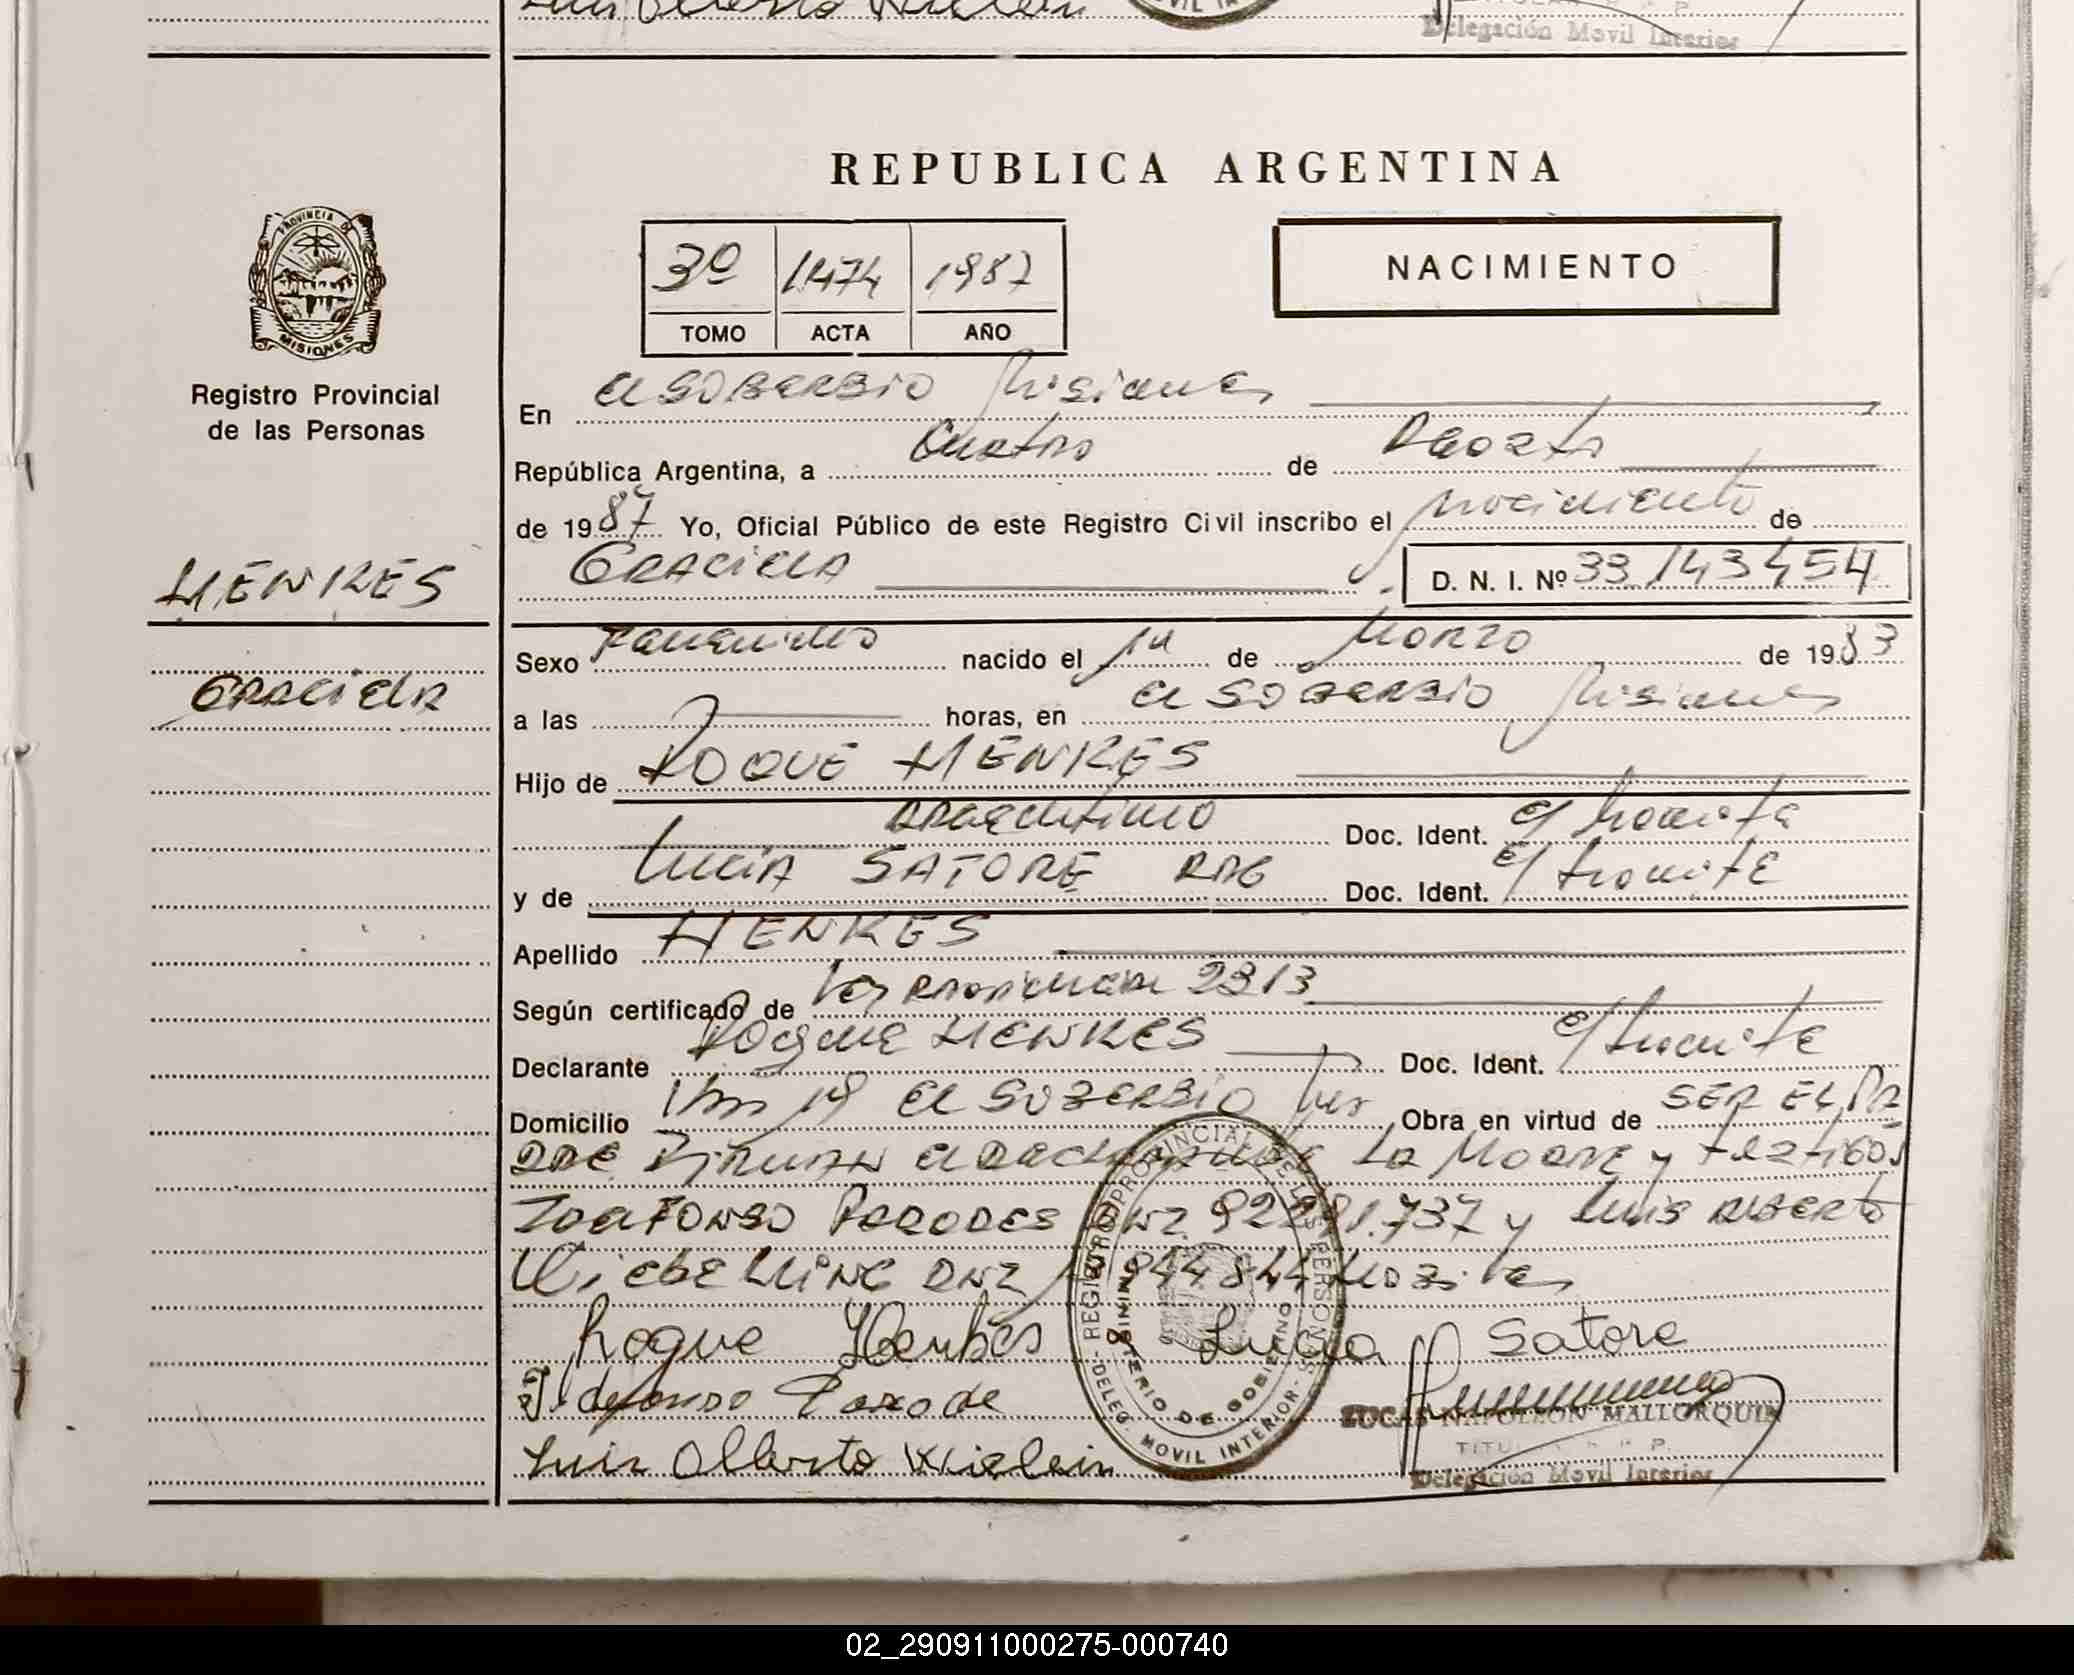 Delegación Movil Interior
REPUBLICA ARGENTINA
3º 1474 1987
TOMO ACTA AÑO
NACIMIENTO
PROVINCIA DE
MISIONES
Registro Provincial
de las Personas
En El SOBERBIO Misiones
República Argentina, a Cuatro de Agosto
de 1987 Yo, Oficial Público de este Registro Civil inscribo el nacimiento de
GRACIELA D. N. I. Nº 33143454
HENKES
GRACIELA
Sexo Femenino nacido el de Marzo de 1983
a las horas, en El SOBERBIO Misiones
Hijo de ROQUE HENKES
Argentino Doc. Ident. e/ tramite
y de Lucia SATORE ARG Doc. Ident. e/ tramite
Apellido HENKES
Según certificado de Ley Provincial 2313
Declarante Roque HENKES Doc. Ident. e/ tramite
Domicilio Km 19 El SOBERBIO Obra en virtud de SER EL PA
DRE Firman el declarante La Madre y testigos
Ildefonso PAREDES DNI. y Luis Alberto
DNI Mos.
Roque Henkes Lucia Satore
Ildefonso Parede
Luis Alberto
REGISTRO PROVINCIAL DE LAS PERSONAS
MINISTERIO DE GOBIERNO
-DELEG. MOVIL INTERIOR-
LUCAS NAPOLEON MALLORQUIN
TITULAR R. P.
Delegación Movil Interior
02_290911000275-000740